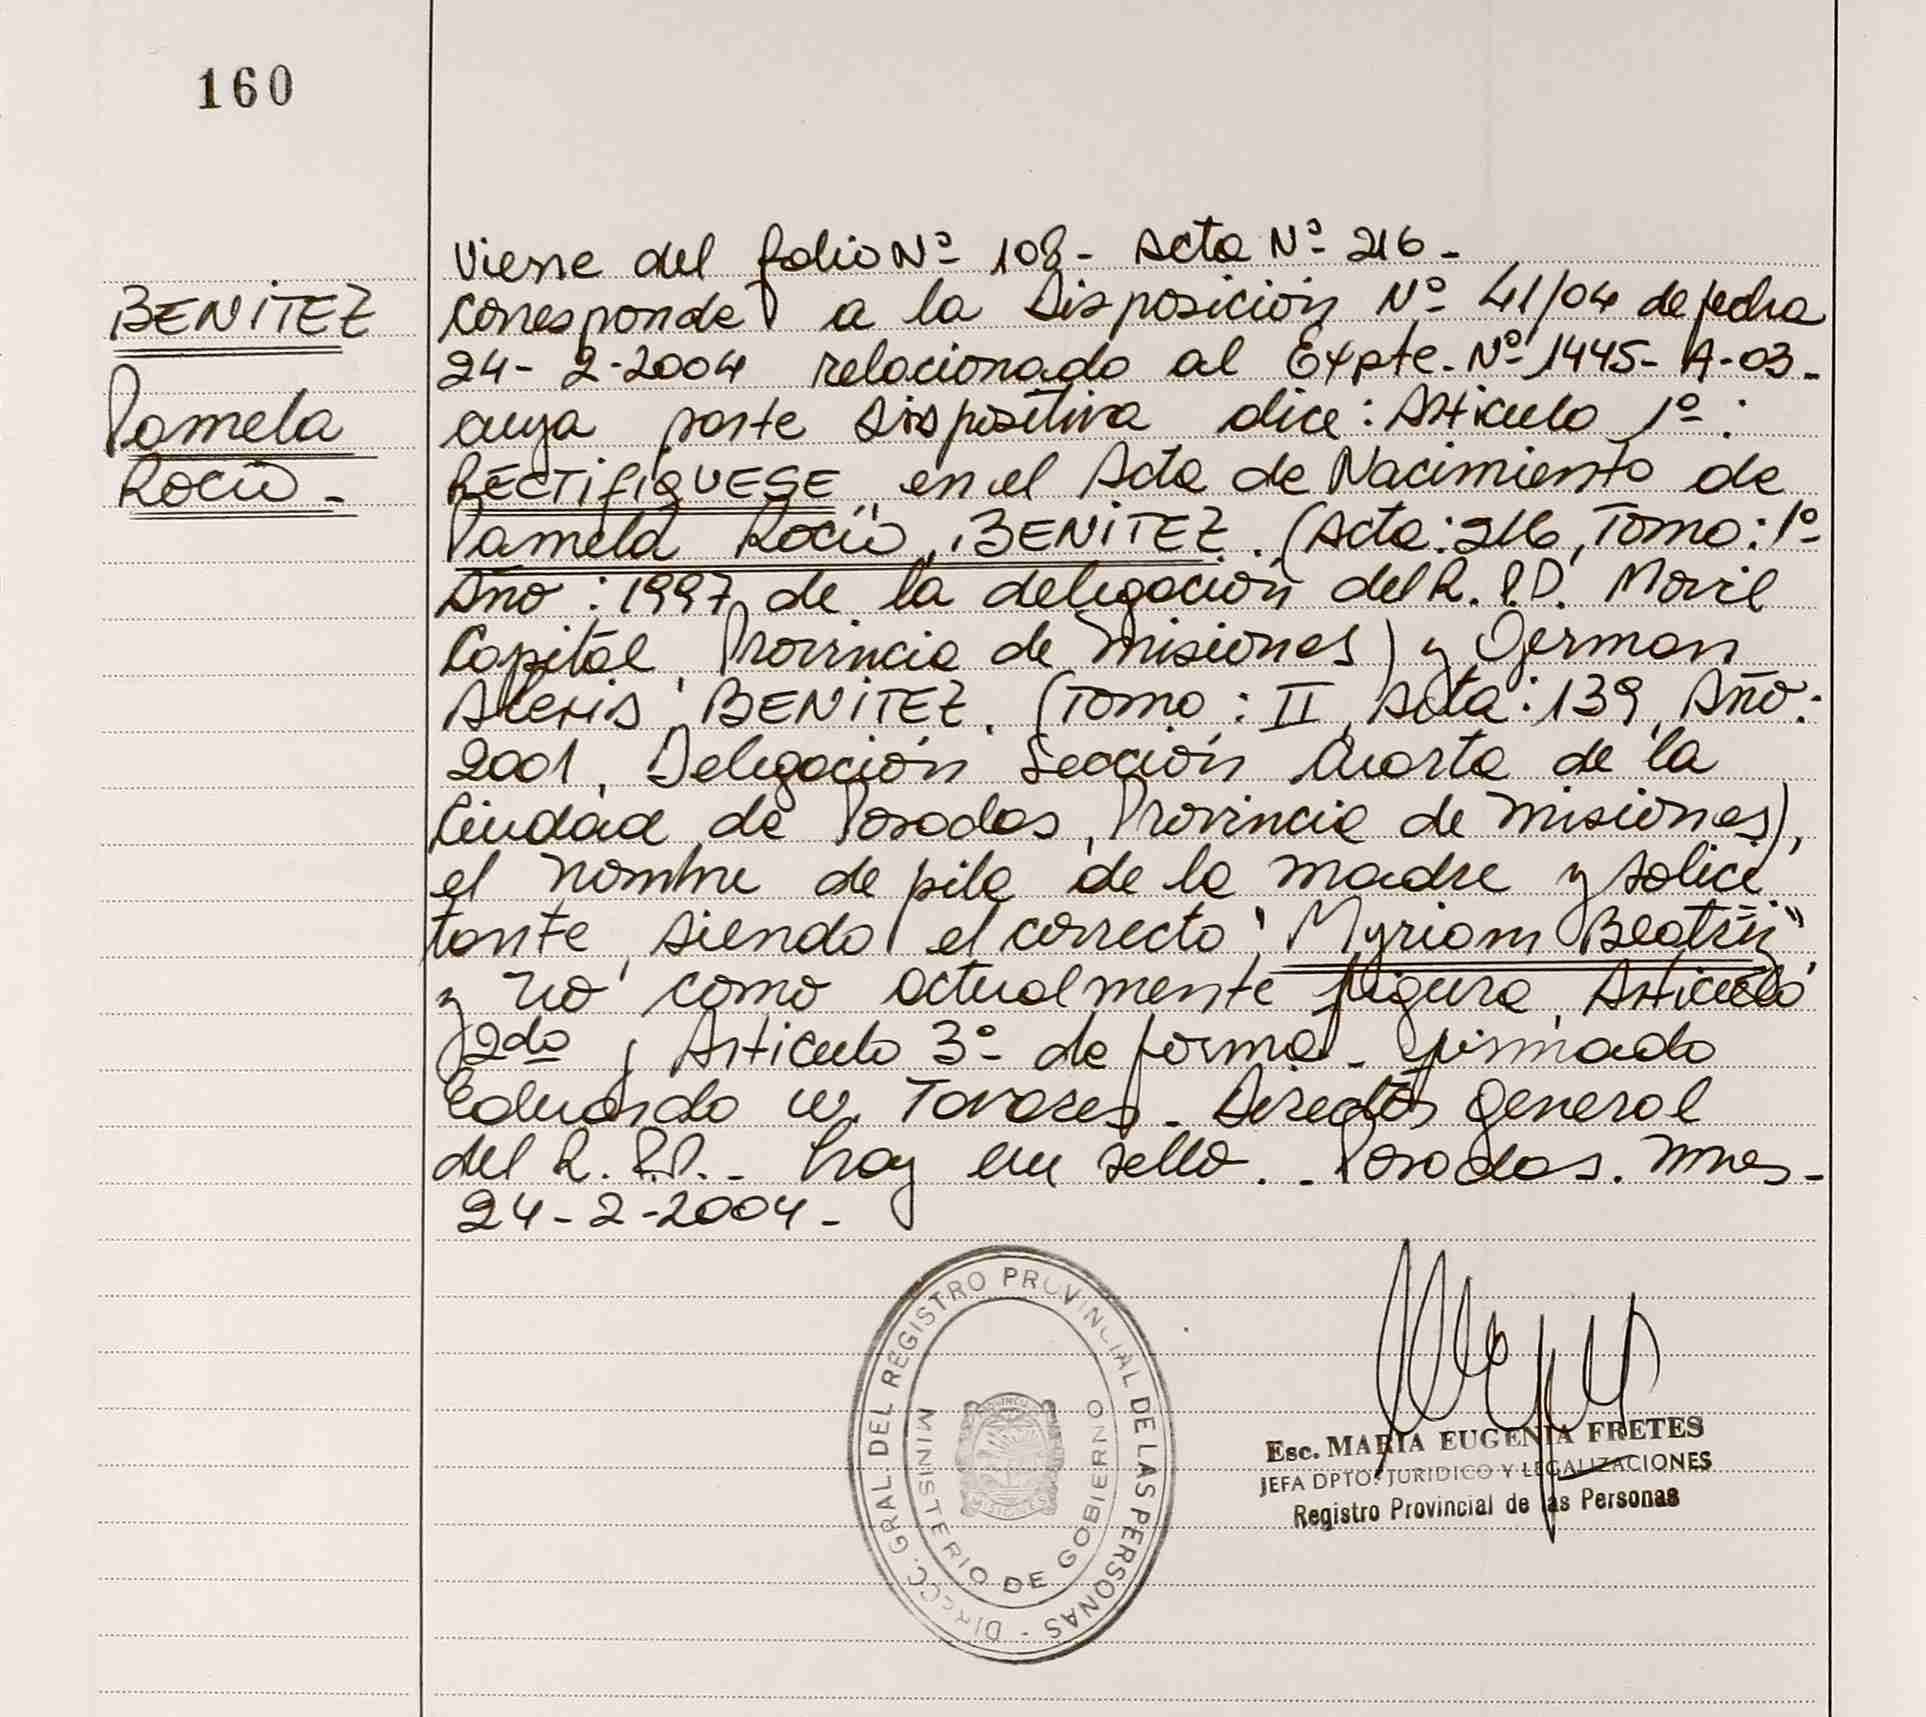 160
BENITEZ
Pamela
Rocío -
Viene del folio Nº 108 - Acta Nº 216 -
Corresponde a la Disposición Nº 41/04 de fecha
24-2-2004 relacionado al Expte. Nº 1445-A-03-
cuya parte dispositiva dice: Artículo 1º:
RECTIFIQUESE en el Acta de Nacimiento de
Pamela Rocío, BENITEZ. (Acta: 216, Tomo: 1º
Año: 1997, de la delegación del R.P.P. Movil
Capital, Provincia de Misiones) y German
Alexis, BENITEZ. (Tomo: II, Acta: 139, Año:
2001, Delegación Sección Cuarta de la
Ciudad de Posadas, Provincia de Misiones),
el nombre de pila de la madre y solici
tante, siendo el correcto "Myriam Beatriz"
y no como actualmente figura, Artículo
2do, Artículo 3º de forma - firmado
Eduardo W. Tavares - Director General
del R.P.P. - hay un sello. - Posadas. Mnes -
24-2-2004 -
DIRECC. GRAL DEL REGISTRO PROVINCIAL DE LAS PERSONAS -
MINISTERIO DE GOBIERNO
MISIONES
Esc. MARIA EUGENIA FRETES
JEFA DPTO. JURIDICO Y LEGALIZACIONES
Registro Provincial de las Personas